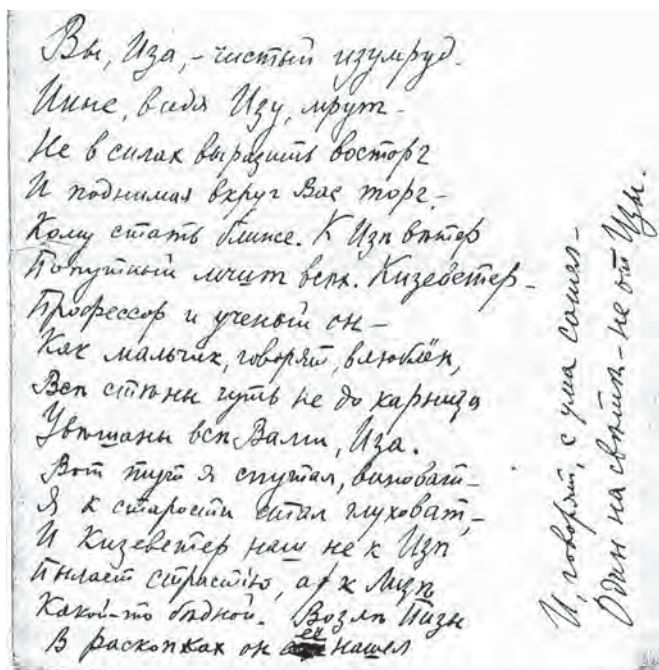 Вы, Иза, – чистый изумруд.
Иные, видя Изу, мрут –
Не в силах выразить восторг
И поднимая вкруг Вас торг, –
Кому стать ближе. К Изѣ вѣтер
Попутный мчит всѣх. Кизеветер –
Профессор и ученый он –
Как мальчик, говорят, влюблён,
Всѣ стѣны чуть не до карниза
Увѣшаны всѣ Вами, Иза.
Вот тут я спутал, виноват –
Я к старости стал глуховат, –
И Кизеветер наш не к Изѣ
Пылает страстью, а к Лизѣ
Какой-то бѣдной. Возлѣ Пизы
В раскопках он её нашел
И, говорят, с ума сошел –
Один на свѣтѣ – не от Изы.